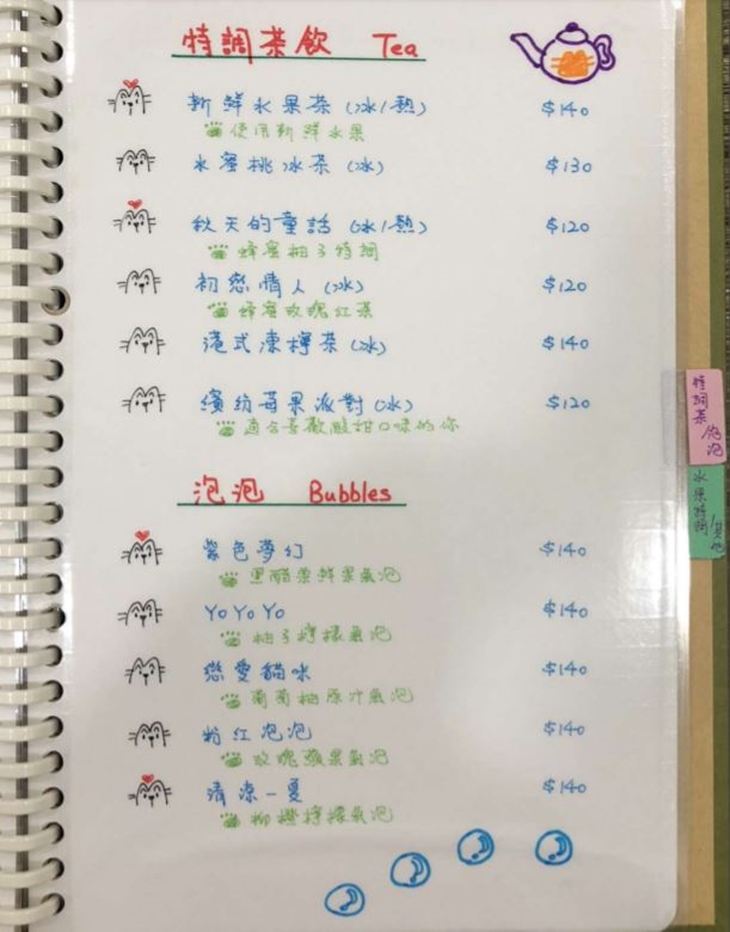 特調茶飲 Tea
新鮮水果茶(冰/熱) $140
使用新鮮水果
水蜜桃冰茶(冰) $130
秋天的童話(冰/熱) $120
蜂蜜柚子特調
初戀情人(冰) $120
蜂蜜玫瑰紅茶
港式凍檸茶(冰) $140
繽紛莓果派對(冰) $120
適合喜歡酸甜口味的你
泡泡 Bubbles
紫色夢幻 $140
黑醋栗鮮果氣泡
YoYoYo $140
柚子檸檬氣泡
戀愛貓咪 $140
葡萄柚原汁氣泡
粉紅泡泡 $140
玫瑰蘋果氣泡
清涼一夏 $140
柳橙檸檬氣泡
特調茶/泡泡
水果特調/